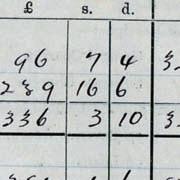 £ s. d.
96 7 4
239 16 6
336 3 10